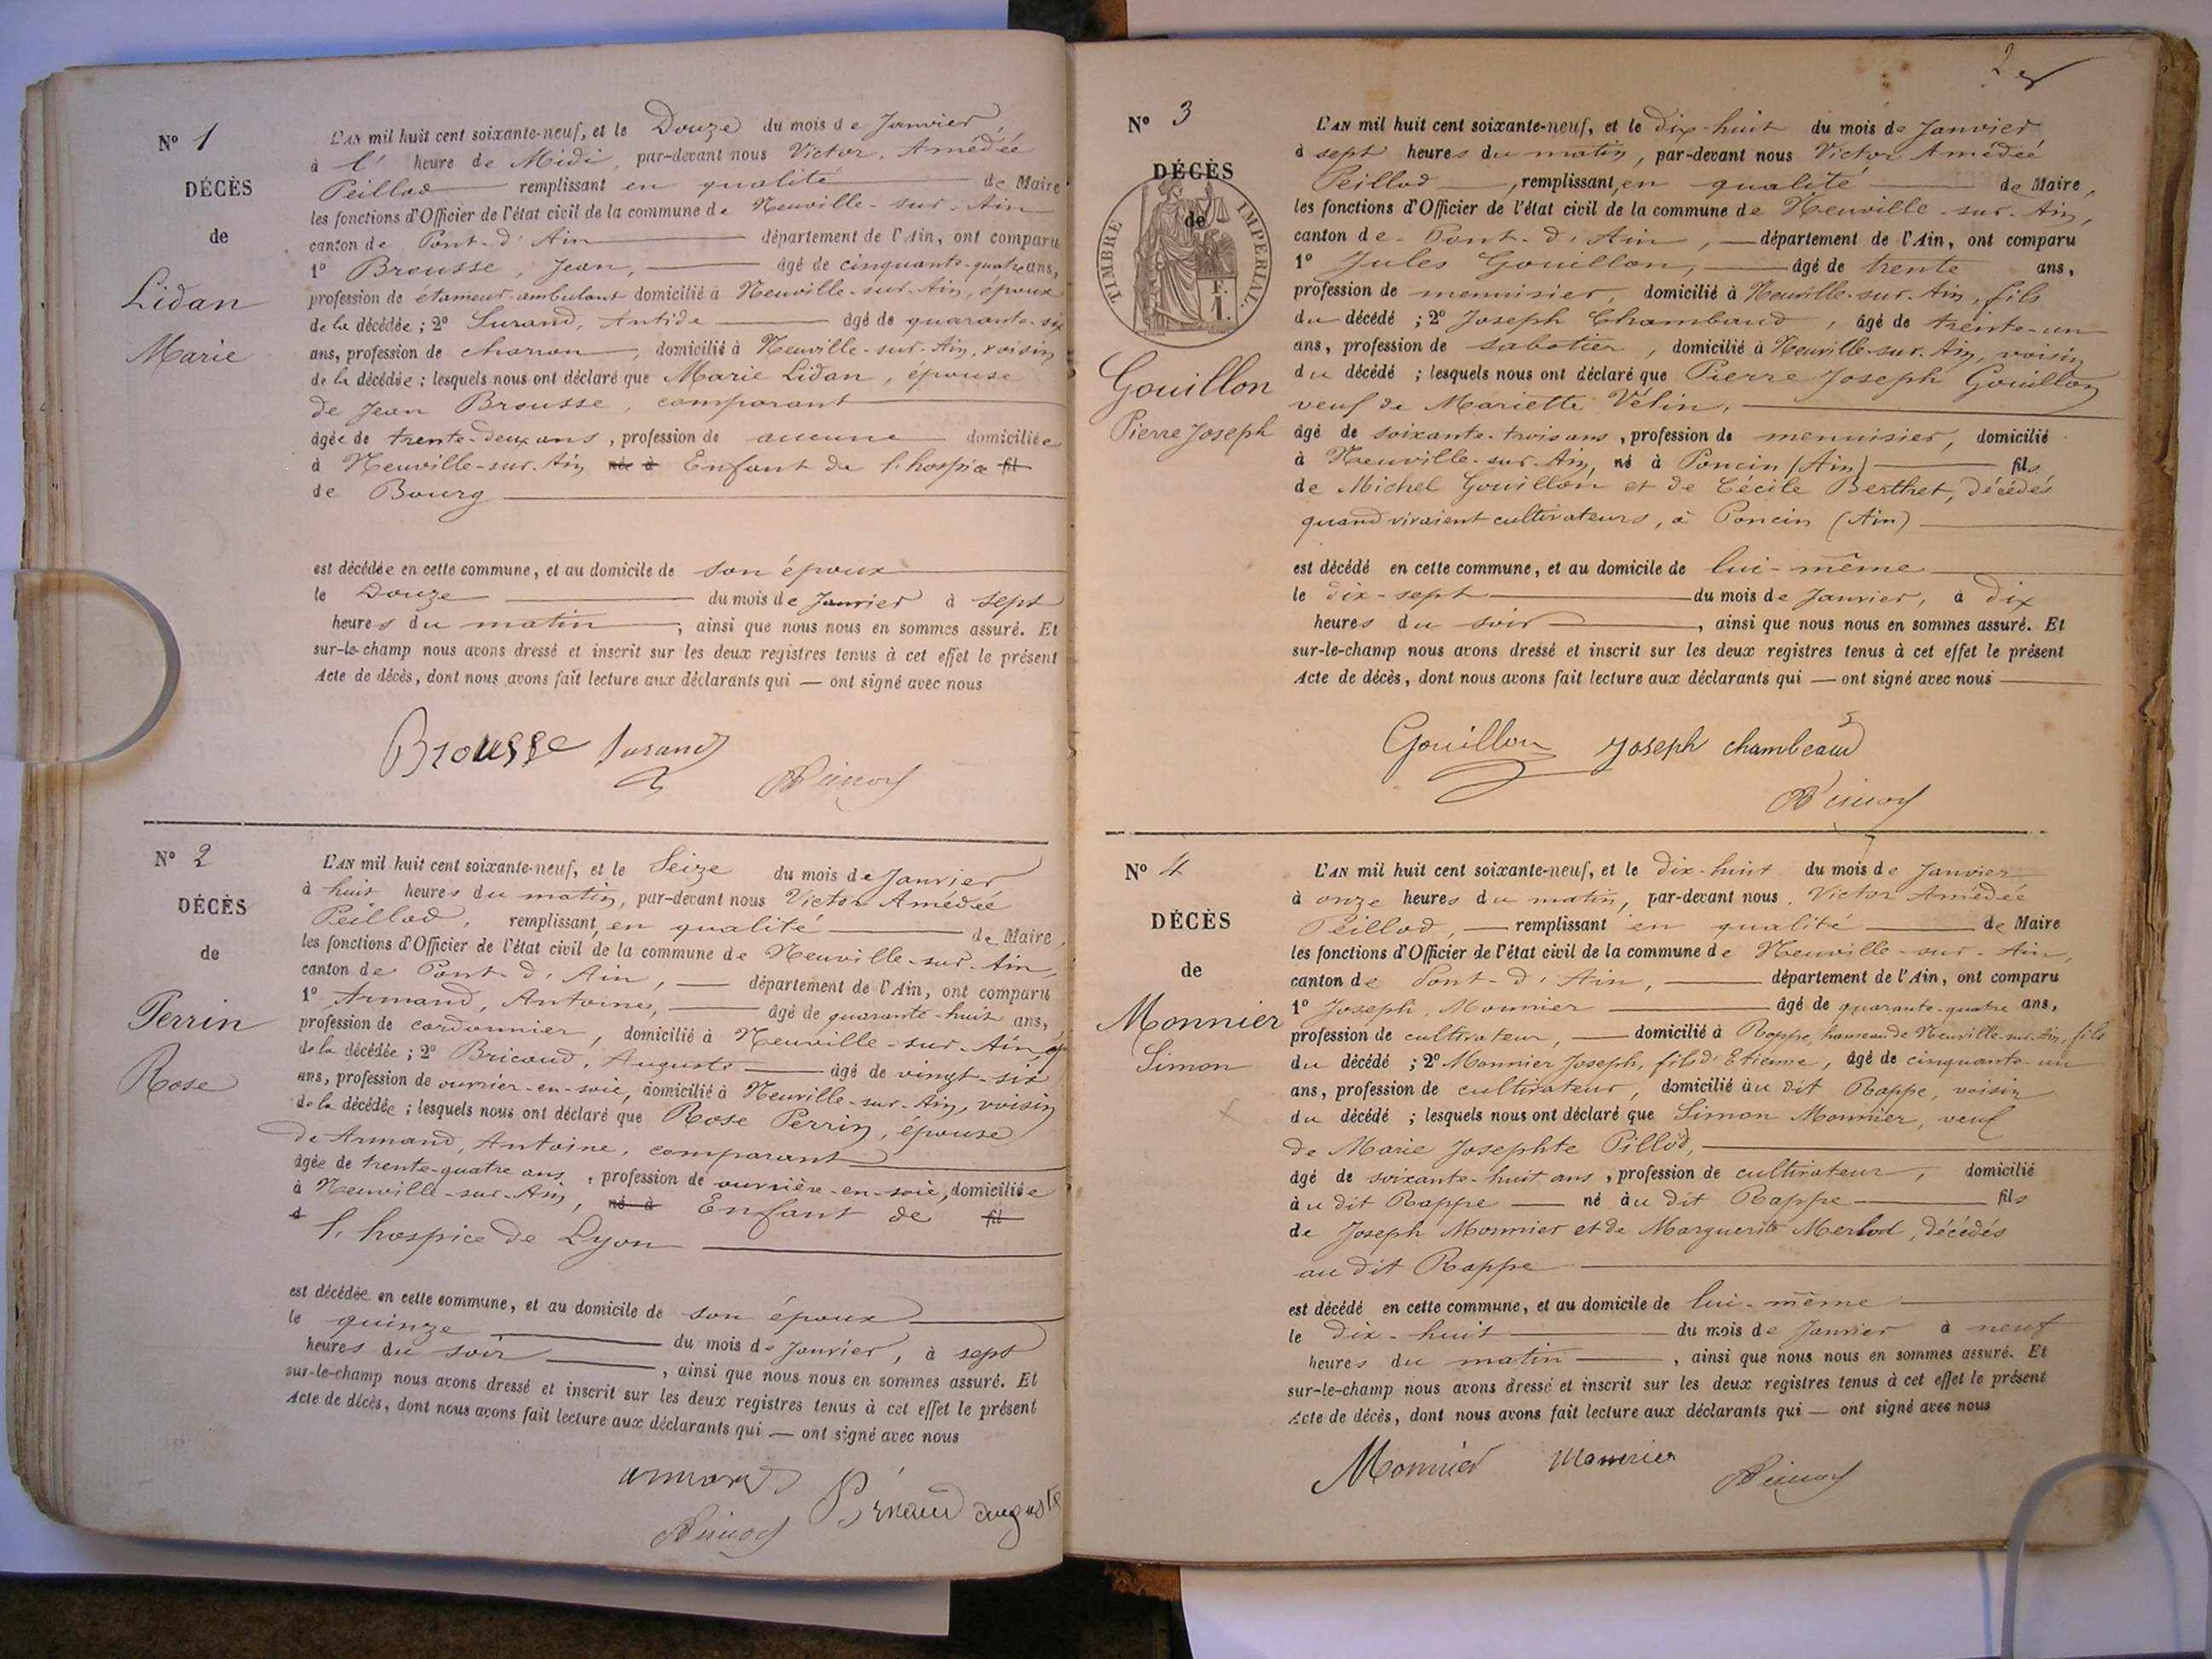 N° 1
DÉCÈS
de
Lidan
Marie
L'AN mil huit cent soixante-neuf, et le Douze du mois de Janvier,
à l' heure de Midi, par-devant nous Victor, Amédée
Peillod remplissant en qualité de Maire
les fonctions d'Officier de l'état civil de la commune de Neuville-sur-Ain
canton de Pont-d'Ain département de l'Ain, ont comparu
1° Brousse, Jean, âgé de cinquante-quatre ans,
profession de étameur-ambulant domicilié à Neuville-sur-Ain, époux
de la décédée ; 2° Surand, Antide âgé de quarante-six
ans, profession de charron, domicilié à Neuville-sur-Ain, voisin
de la décédée ; lesquels nous ont déclaré que Marie Lidan, épouse
de Jean Brousse, comparant
âgée de trente-deux ans, profession de aucune domiciliée
à Neuville-sur-Ain née à Enfant de l'hospice fil
de Bourg
est décédée en cette commune, et au domicile de son époux
le Douze du mois de Janvier à sept
heures du matin, ainsi que nous nous en sommes assuré. Et
sur-le-champ nous avons dressé et inscrit sur les deux registres tenus à cet effet le présent
Acte de décès, dont nous avons fait lecture aux déclarants qui — ont signé avec nous
Brousse Surand
N° 2
DÉCÈS
de
Perrin
Rose
L'AN mil huit cent soixante-neuf, et le Seize du mois de Janvier
à huit heures du matin, par-devant nous Victor Amédée
Peillod, remplissant en qualité de Maire,
les fonctions d'Officier de l'état civil de la commune de Neuville-sur-Ain,
canton de Pont-d'Ain, — département de l'Ain, ont comparu
1° Armand, Antoine, âgé de quarante-huit ans,
profession de cordonnier, domicilié à Neuville-sur-Ain, ép
de la décédée ; 2° Bricaud, Auguste âgé de vingt-six
ans, profession de ouvrier-en-soie, domicilié à Neuville-sur-Ain, voisin
de la décédée ; lesquels nous ont déclaré que Rose Perrin, épouse
de Armand, Antoine, comparant
âgée de trente-quatre ans, profession de ouvrière-en-soie, domiciliée
à Neuville-sur-Ain, né à Enfant de fil
d l'hospice de Lyon
est décédée en cette commune, et au domicile de son époux
le quinze du mois de Janvier, à sept
heures du soir, ainsi que nous nous en sommes assuré. Et
sur-le-champ nous avons dressé et inscrit sur les deux registres tenus à cet effet le présent
Acte de décès, dont nous avons fait lecture aux déclarants qui — ont signé avec nous
armand
auguste
2
N° 3
DÉCÈS
de
TIMBRE IMPÉRIAL.
Gouillon
Pierre Joseph
L'AN mil huit cent soixante-neuf, et le dix-huit du mois de Janvier
à sept heures du matin, par-devant nous Victor Amédée
Peillod, remplissant en qualité de Maire,
les fonctions d'Officier de l'état civil de la commune de Neuville-sur-Ain,
canton de Pont-d'Ain, — département de l'Ain, ont comparu
1° Jules Gouillon, âgé de trente ans,
profession de menuisier, domicilié à Neuville-sur-Ain, fils
du décédé ; 2° Joseph Chambaud, âgé de trente-un
ans, profession de sabotier, domicilié à Neuville-sur-Ain, voisin
du décédé ; lesquels nous ont déclaré que Pierre Joseph Gouillon
veuf de Mariette Vélin,
âgé de soixante-trois ans, profession de menuisier, domicilié
à Neuville-sur-Ain, né à Poncin (Ain) fils
de Michel Gouillon et de Cécile Berthet, décédés
quand vivaient cultivateurs, à Poncin (Ain)
est décédé en cette commune, et au domicile de lui-même
le dix-sept du mois de Janvier, à dix
heures du soir, ainsi que nous nous en sommes assuré. Et
sur-le-champ nous avons dressé et inscrit sur les deux registres tenus à cet effet le présent
Acte de décès, dont nous avons fait lecture aux déclarants qui — ont signé avec nous
Gouillon Joseph chambeaud
N° 4
DÉCÈS
de
Monnier
Simon
L'AN mil huit cent soixante-neuf, et le dix-huit du mois de Janvier
à onze heures du matin, par-devant nous, Victor Amédée
Peillod, — remplissant en qualité de Maire
les fonctions d'Officier de l'état civil de la commune de Neuville-sur-Ain,
canton de Pont-d'Ain, département de l'Ain, ont comparu
1° Joseph, Monnier âgé de quarante-quatre ans,
profession de cultivateur, — domicilié à Rappe, hameau de Neuville-sur-Ain, fils
du décédé ; 2° Monnier Joseph, fils d'Etienne, âgé de cinquante-un
ans, profession de cultivateur, domicilié au dit Rappe, voisin
du décédé ; lesquels nous ont déclaré que Simon Monnier, veuf
de Marie Josephte Pillod,
âgé de soixante-huit ans, profession de cultivateur, domicilié
au dit Rappe — né au dit Rappe fils
de Joseph Monnier et de Marguerite Merlod, décédés
au dit Rappe
est décédé en cette commune, et au domicile de lui-même
le dix-huit du mois de Janvier à neuf
heures du matin, ainsi que nous nous en sommes assuré. Et
sur-le-champ nous avons dressé et inscrit sur les deux registres tenus à cet effet le présent
Acte de décès, dont nous avons fait lecture aux déclarants qui — ont signé avec nous
Monnier Monnier